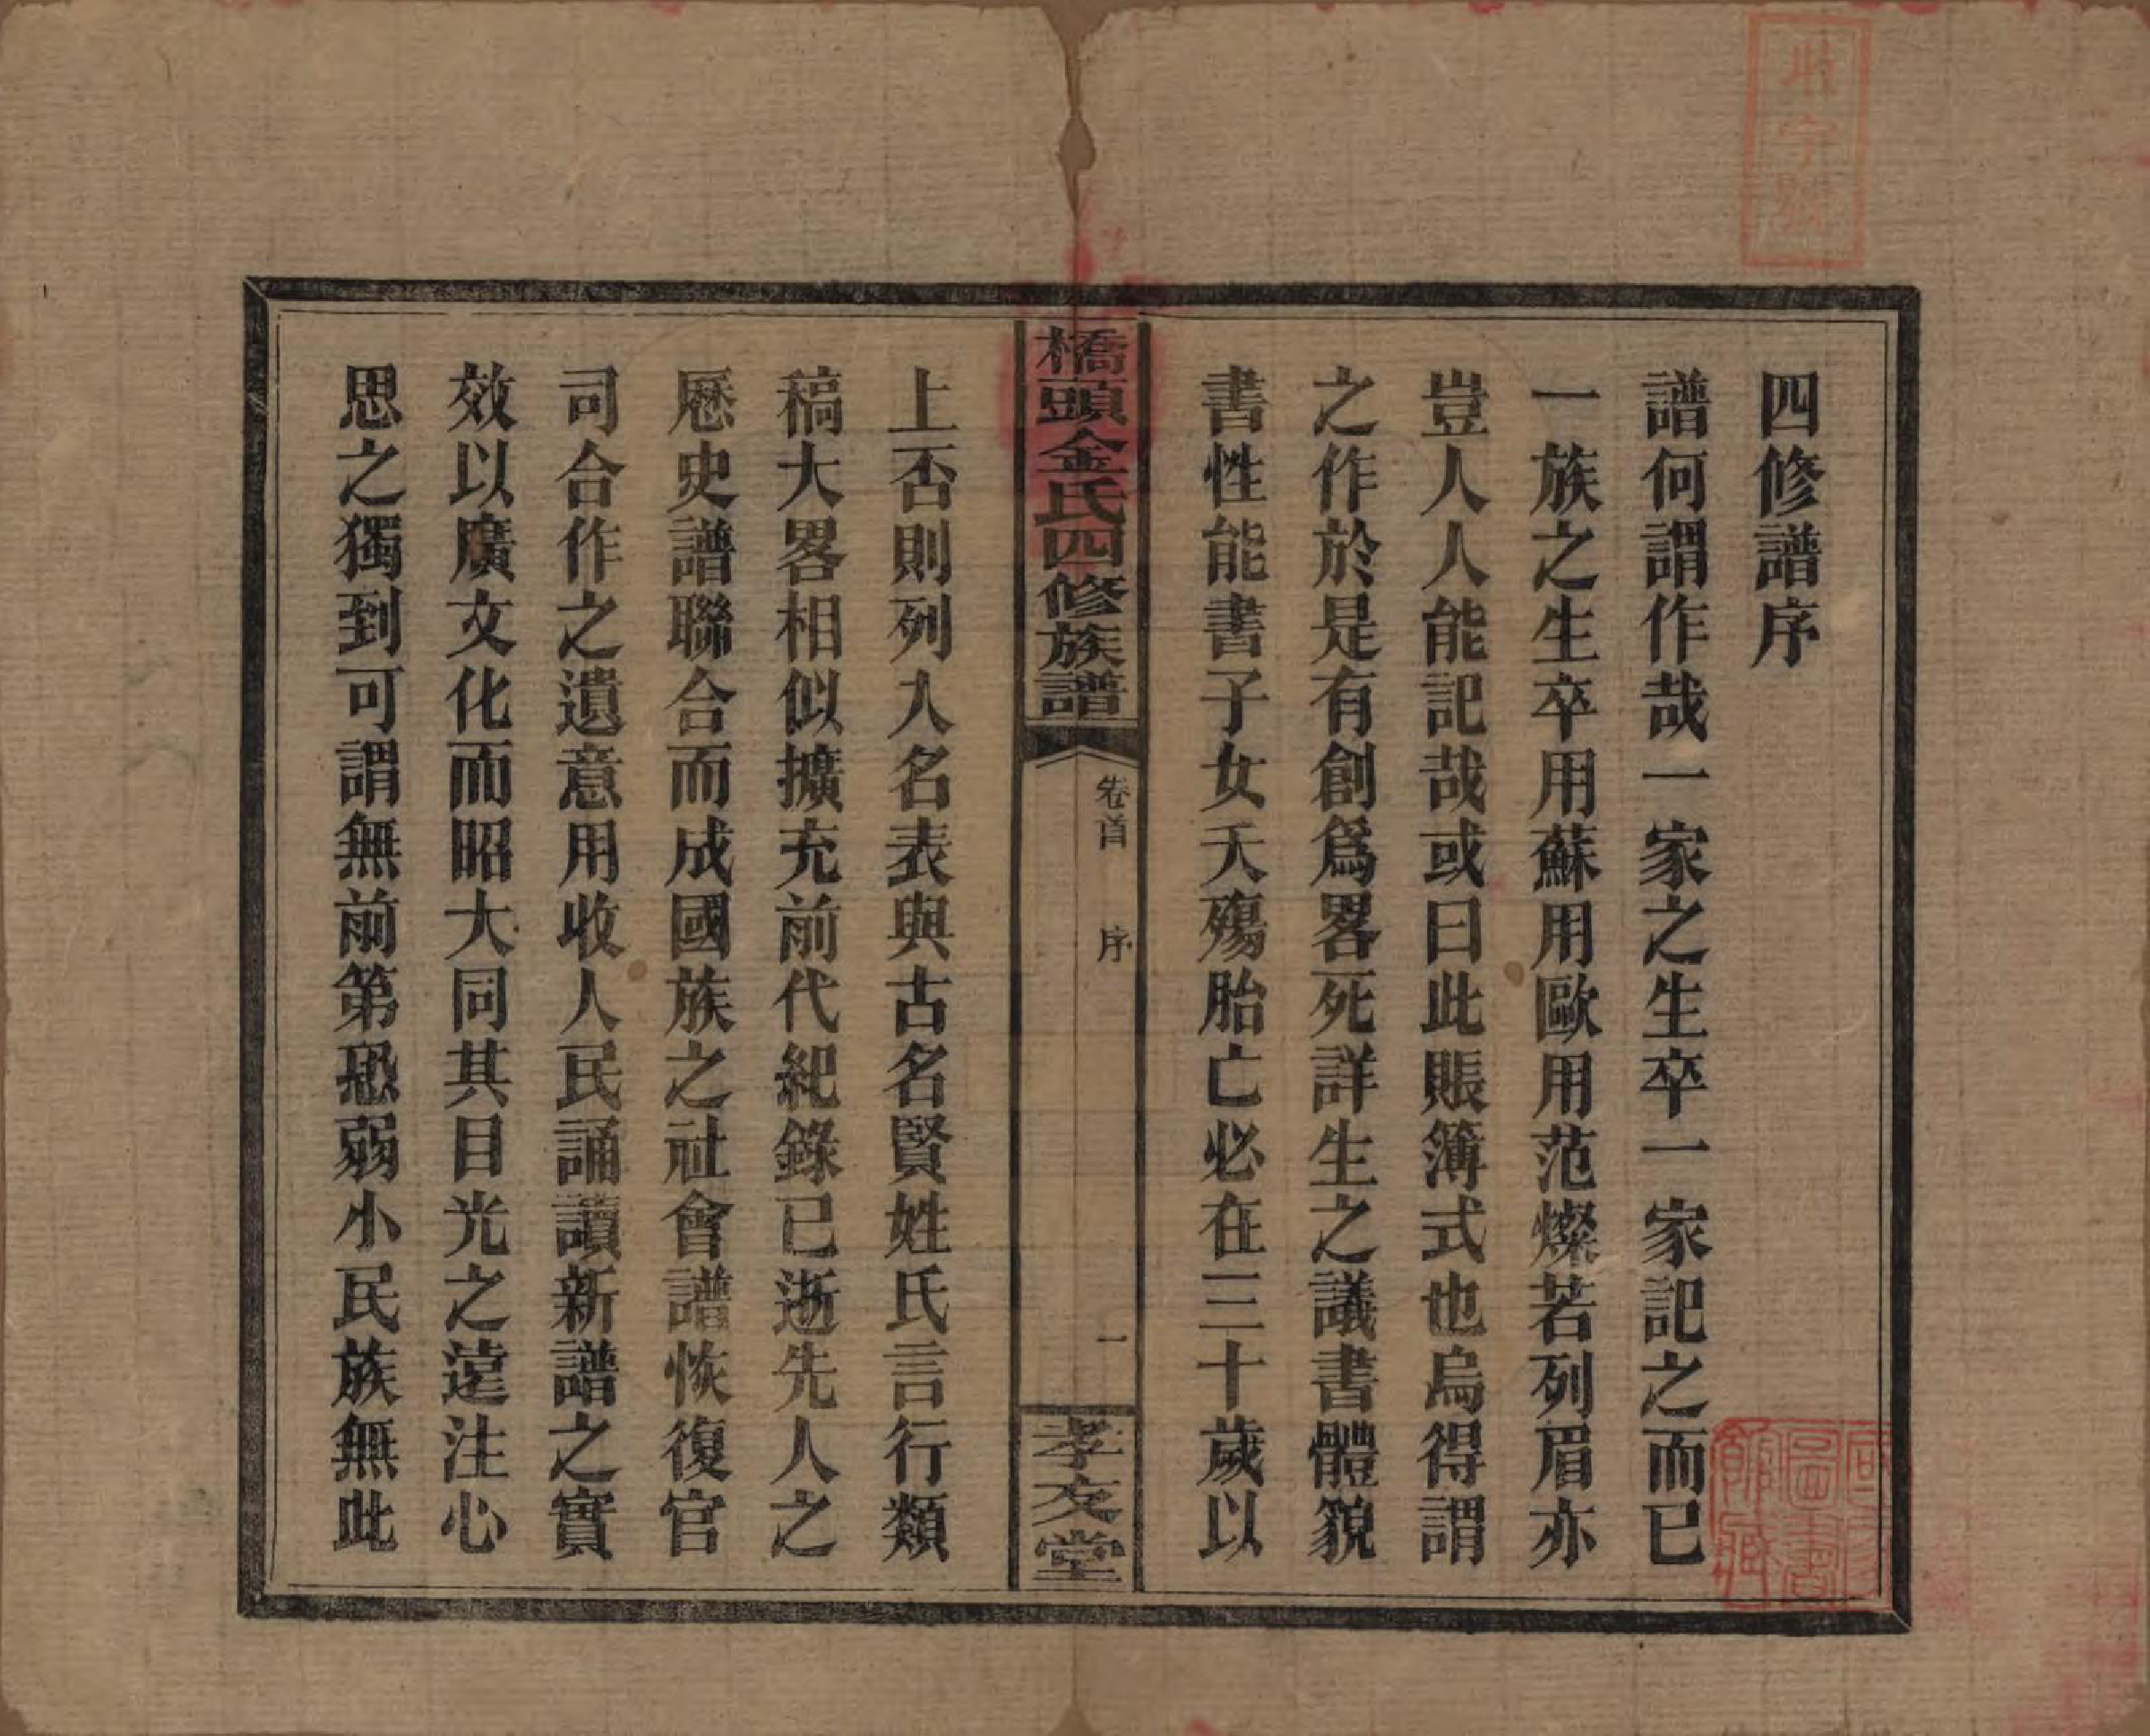 四修譜序
譜何謂作哉一家之生卒一家記之而已
一族之生卒用蘇用歐用范燦若列眉亦
豈人人能記哉或曰此賬簿式也烏得謂
之作於是有創爲畧死詳生之議書體貌
書性能書子女夭殤胎亡必在三十歲以
橋頭金氏四修族譜
卷首 序
一
孝友堂
上否則列人名表與古名賢姓氏言行類
稿大畧相似擴充前代紀錄已逝先人之
厯史譜聯合而成國族之社會譜恢復官
司合作之遺意用收人民誦讀新譜之實
效以廣文化而昭大同其目光之遠注心
思之獨到可謂無前第恐弱小民族無此
字號
國家圖書館藏